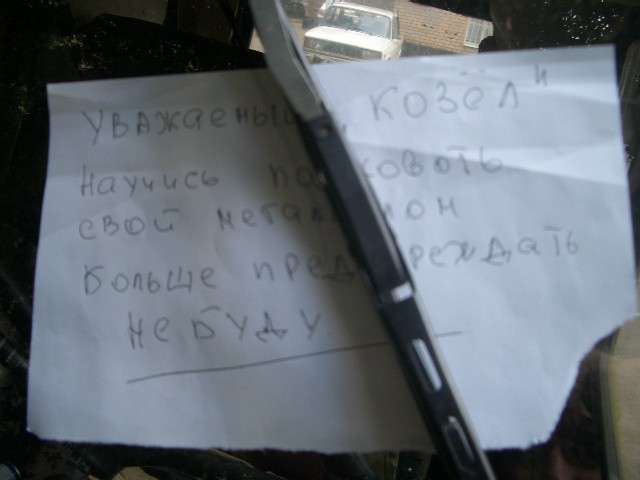 УВАЖАЕМЫЙ „КОЗЁЛ"
НАУЧИСЬ ПАРКОВАТЬ
СВОЙ МЕТАЛЛОМ
БОЛЬШЕ ПРЕДУПРЕЖДАТЬ
НЕ БУДУ.